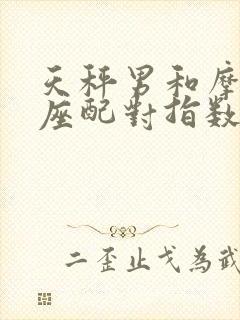 天秤男和摩
座配對指數
二歪止戈為武